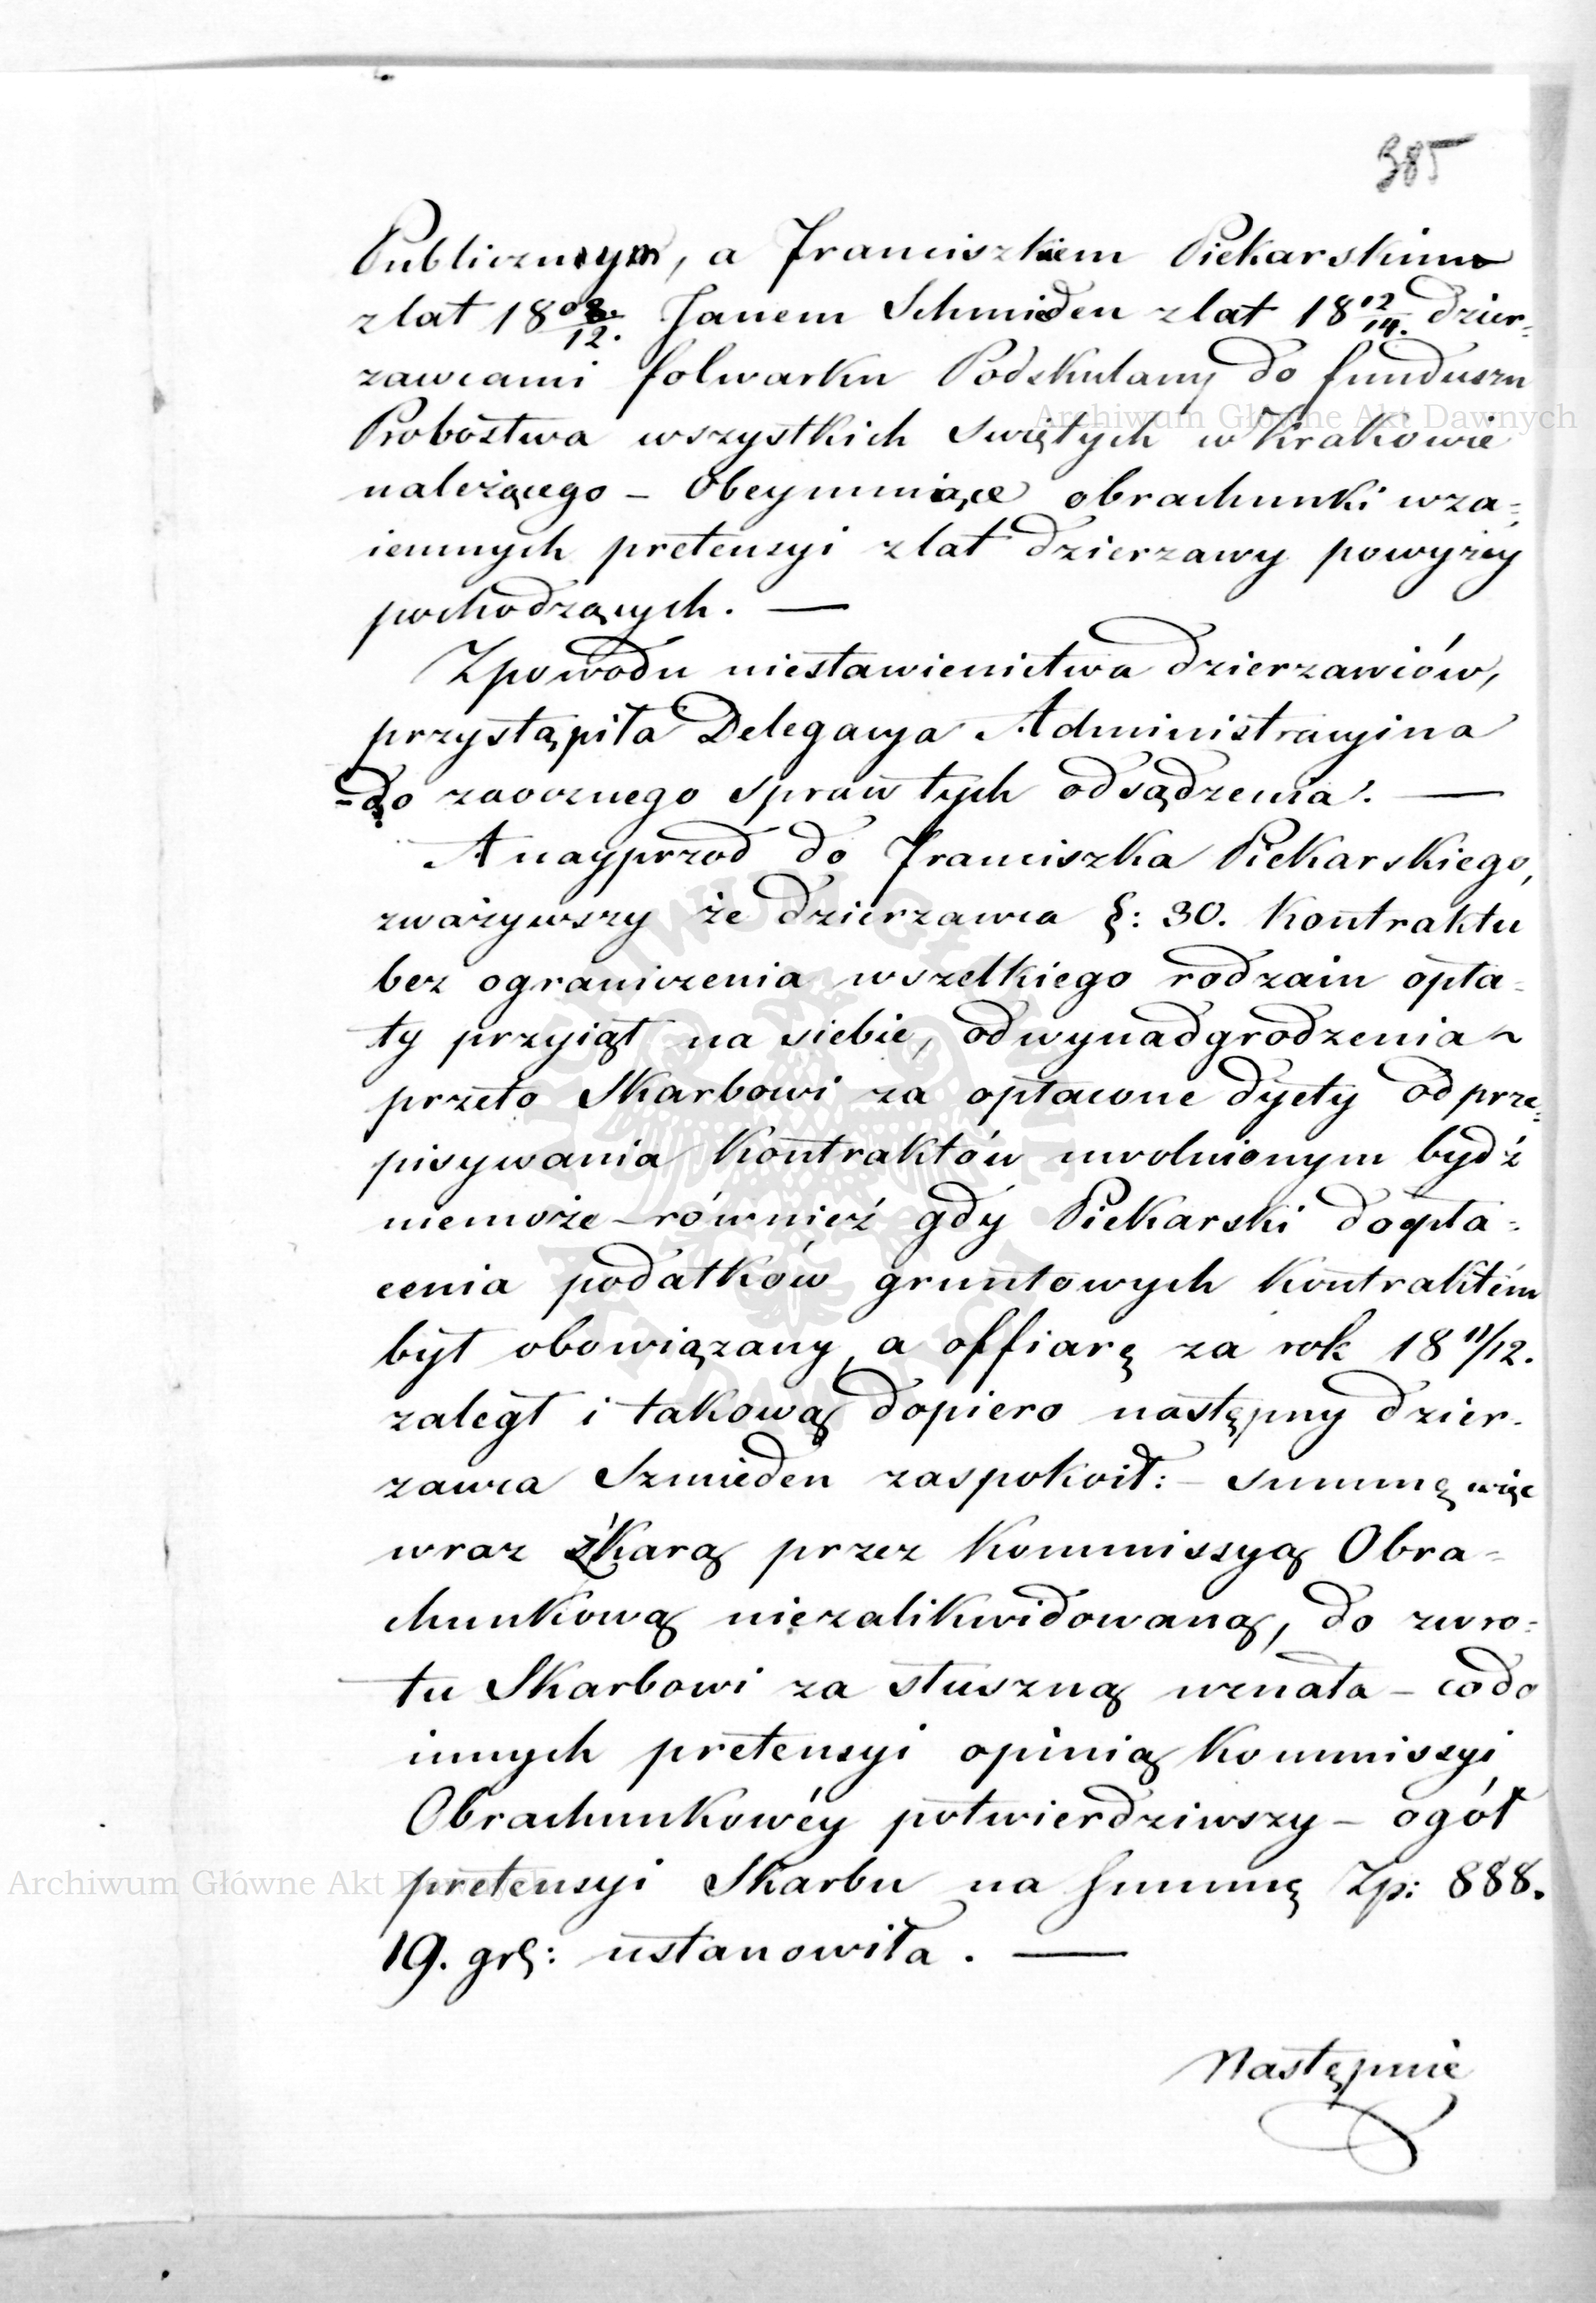 385
Publicznym, a Franciszkiem Piekarskim
z lat 18 08/12. Janem Schmieden z lat 18 12/14. dzier-
zawcami folwarku Podskulany do funduszu
Probostwa wszystkich Swiętych w Krakowie
należącego – Obeymuiące obrachunki wza-
iemnych pretensyi z lat dzierzawy powyżey
pochodzących. —
Z powodu niestawienictwa dzierzawców,
przystąpiła Delegacya Administracyina
do zaocznego spraw tych odsądzenia. —
A nayprzod do Franciszka Piekarskiego,
zważywszy że dzierzawca §: 30. Kontraktu
bez ograniczenia wszelkiego rodzaiu opła-
ty przyiął na siebie, od wynadgrodzenia
przeto Skarbowi za opłacone dyety od prze-
pisywania Kontraktów uwolnionym bydź
niemoże – również gdy Piekarski do opła-
cenia podatków gruntowych Kontraktem
był obowiązany, a offiarę za rok 18 11/12.
zaległ i takową dopiero następny dzier-
zawca Szmieden zaspokoił: – summę więc
wraz z Karą przez Kommissyą Obra-
chunkową niezalikwidowaną, do zwro-
tu Skarbowi za słuszną uznała – co do
innych pretensyi opinią Kommissyi
Obrachunkowéy potwierdziwszy – ogół
pretensyi Skarbu na Summę Zp: 888.
19. gr: ustanowiła. —
Następnie
Archiwum Główne Akt Dawnych
Archiwum Główne Akt Dawnych